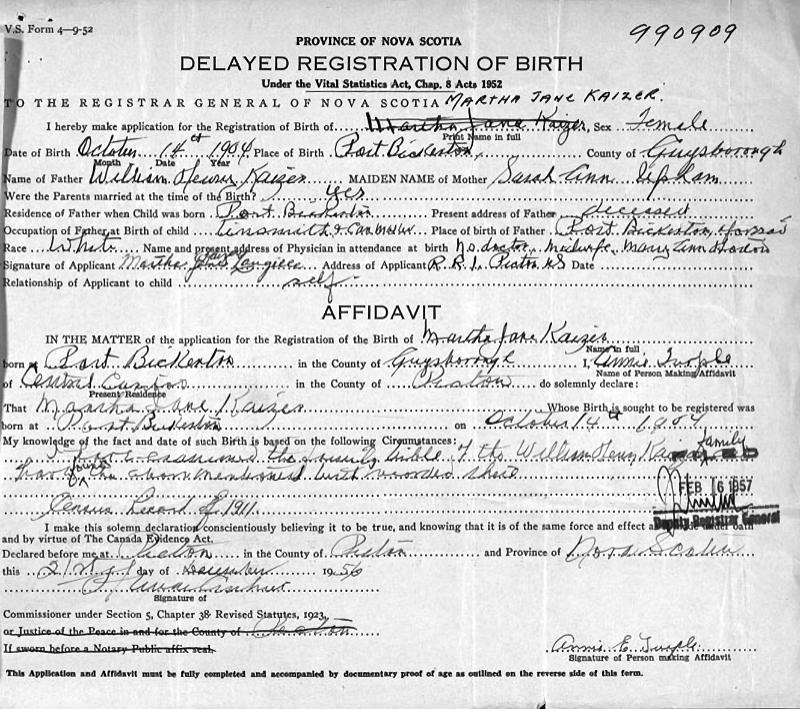 V.S. Form 4—9-52
990909
PROVINCE OF NOVA SCOTIA
DELAYED REGISTRATION OF BIRTH
Under the Vital Statistics Act, Chap. 8 Acts 1952
TO THE REGISTRAR GENERAL OF NOVA SCOTIA MARTHA JANE KAIZER.
I hereby make application for the Registration of Birth of Martha Jane Kaizer, Sex Female
Print Name in full
Date of Birth October 14th 1904 Place of Birth Port Bickerton, County of Guysborough
Month Date Year
Name of Father William Henry Kaizer MAIDEN NAME of Mother Sarah Ann
Were the Parents married at the time of the Birth? yes
Residence of Father when Child was born Port Bickerton Present address of Father deceased
Occupation of Father at Birth of child tinsmith & Place of birth of Father Port Bickerton
Race White Name and present address of Physician in attendance at birth no doctor, midwife, Mary Ann
Signature of Applicant Martha Jane Kaizer Langille Address of Applicant R.R.1. Pictou NS Date
Relationship of Applicant to child self
AFFIDAVIT
IN THE MATTER of the application for the Registration of the Birth of Martha Jane Kaizer
Name in full
born at Port Bickerton in the County of Guysborough I, Annie Turple
Name of Person Making Affidavit
of Central Caribou in the County of Pictou do solemnly declare:
Present Residence
That Martha Jane Kaizer Whose Birth is sought to be registered was
born at Port Bickerton on October 14th 1904
My knowledge of the fact and date of such Birth is based on the following Circumstances:
I have examined the family bible of the William Henry Kaizer family
have found the above mentioned birth recorded
FEB 16 1957
Census Record of 1911.
Deputy Registrar General
I make this solemn declaration conscientiously believing it to be true, and knowing that it is of the same force and effect as if made under oath
and by virtue of The Canada Evidence Act.
Declared before me at Pictou in the County of Pictou and Province of Nova Scotia
this 21st day of December 1956
Signature of
Commissioner under Section 5, Chapter 38 Revised Statutes, 1923,
or Justice of the Peace in and for the County of Pictou
If sworn before a Notary Public affix seal.
Annie E. Turple
Signature of Person making Affidavit
This Application and Affidavit must be fully completed and accompanied by documentary proof of age as outlined on the reverse side of this form.